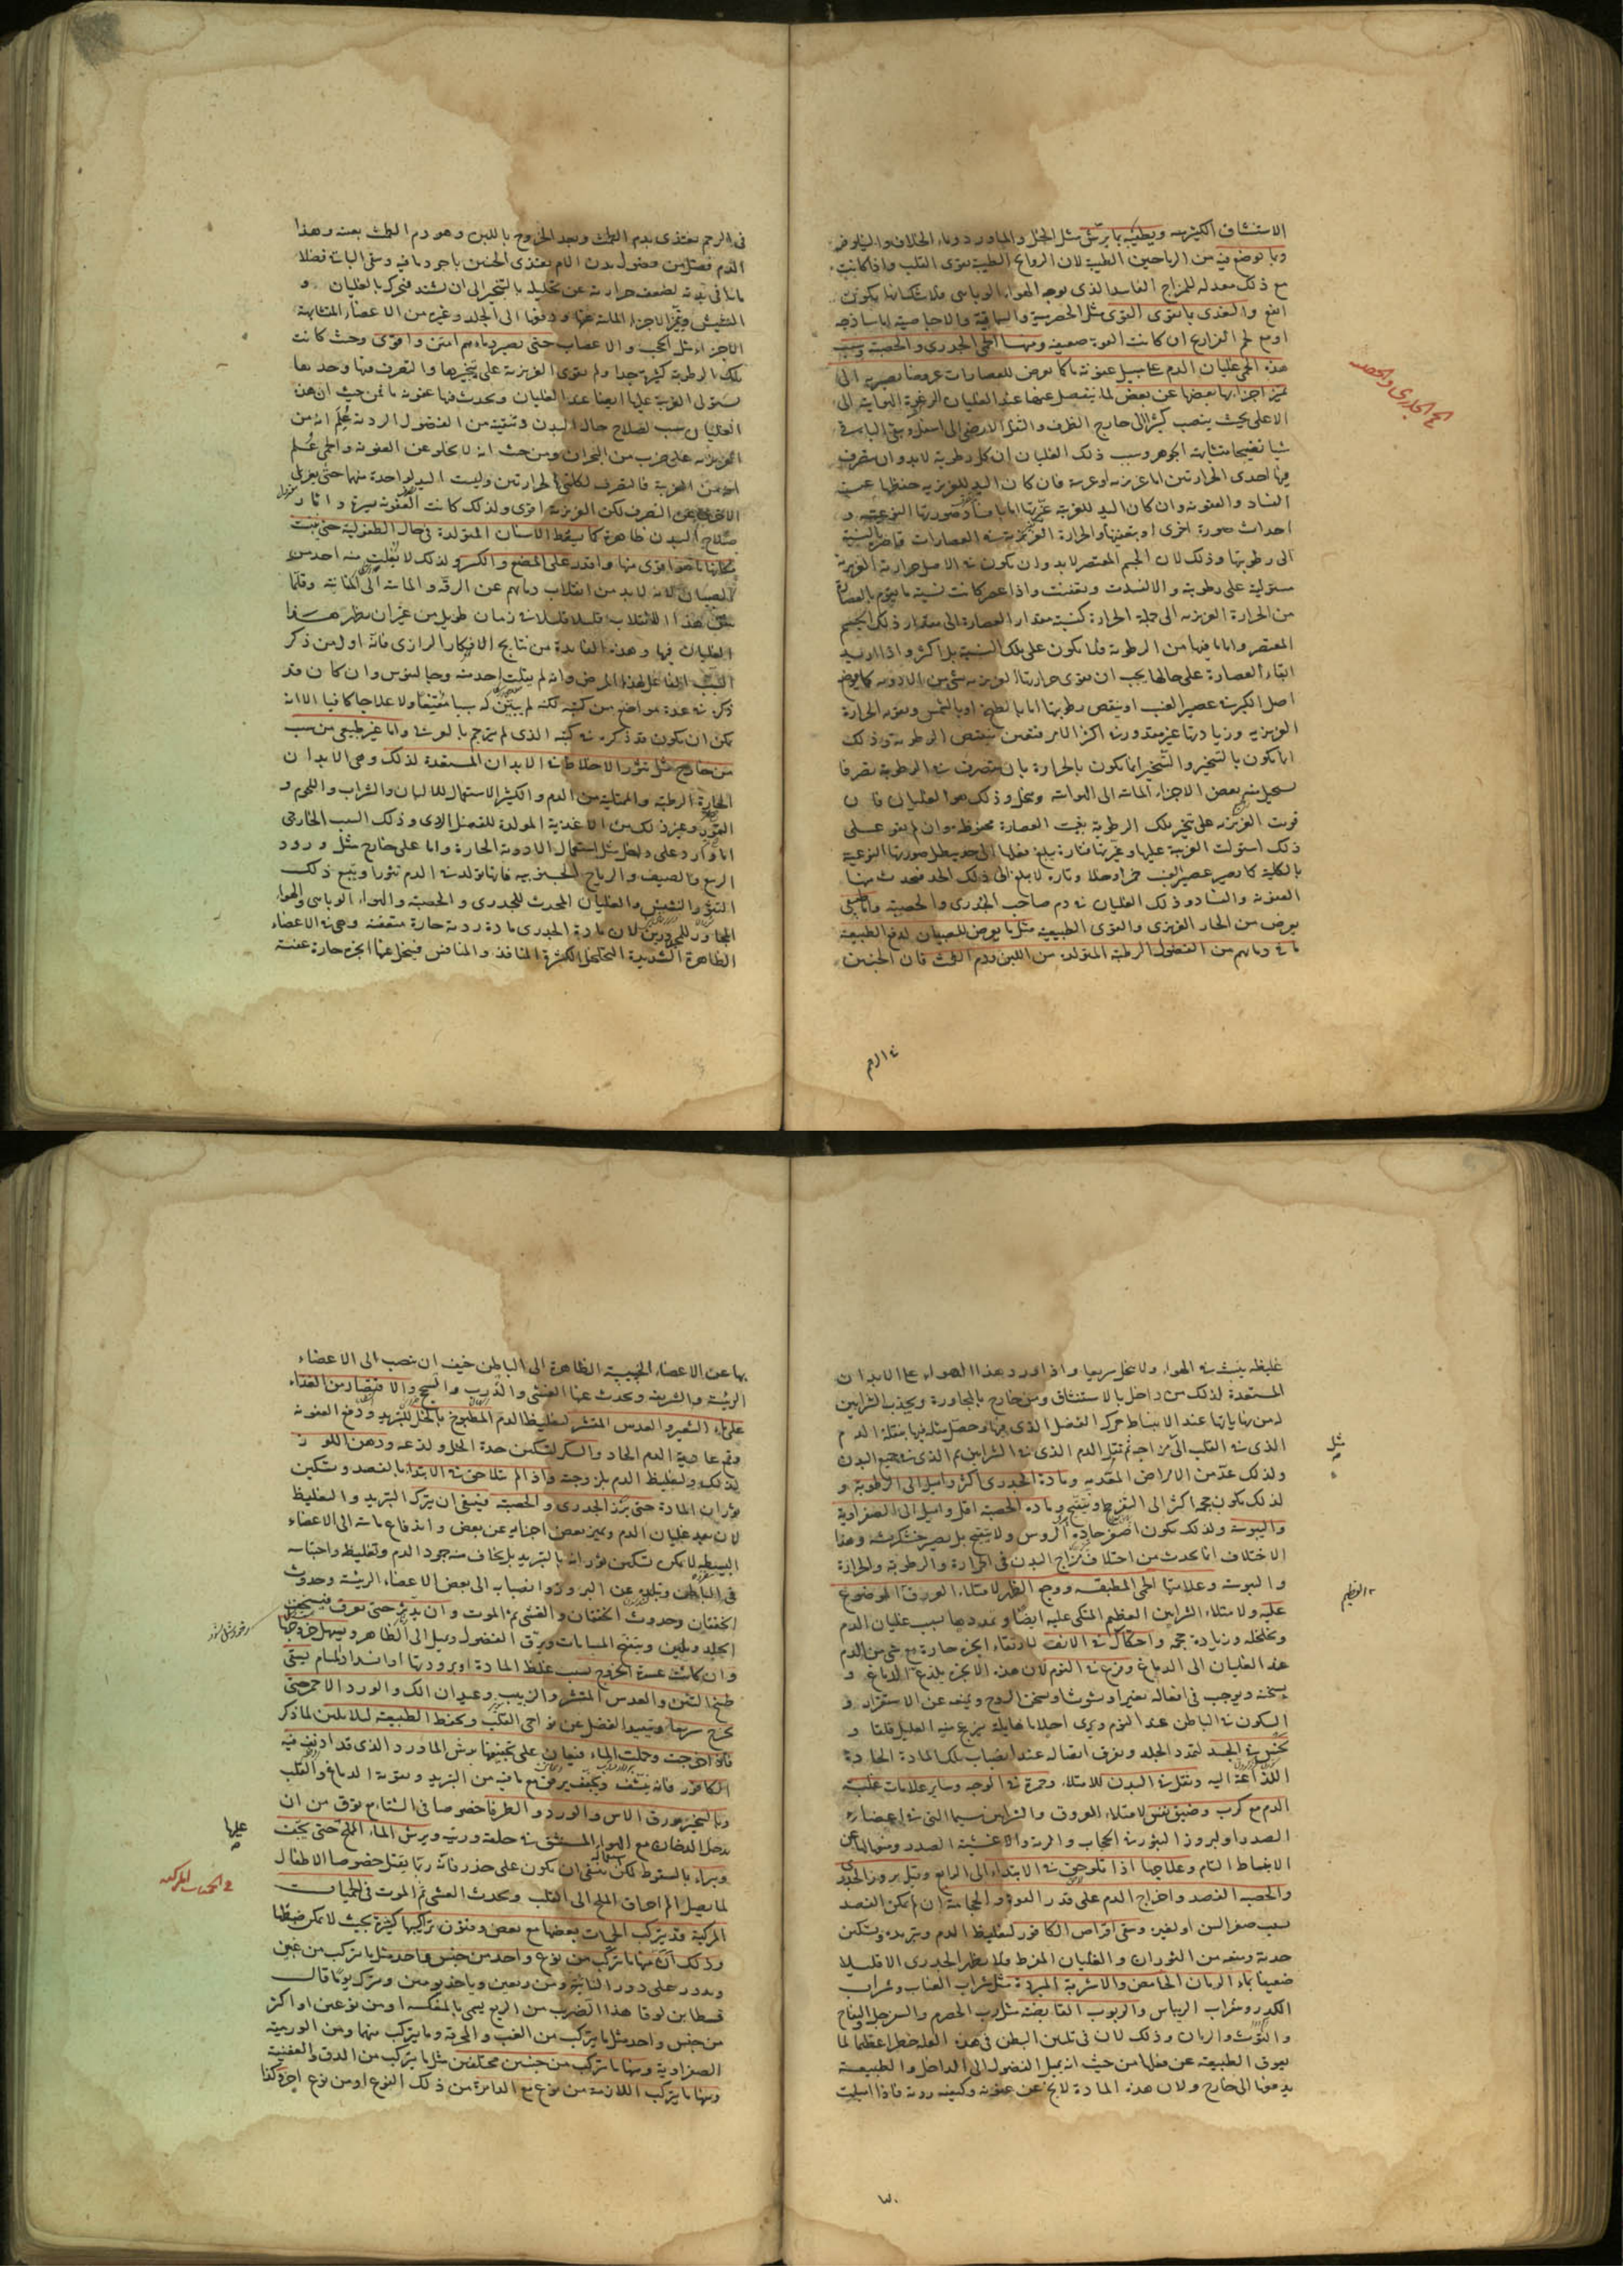 الاستنشاق الكثير منه ويطيبه بما يرش مثل الخل والماورد وماء الخلاف والنيلوفر
وبما يوضع فيه من الرياحين الطيبة لان الروايح الطيبة تقوى القلب واذا كانت
مع ذلك معدله للمزاج الفاسد الذى يوجه الهواء الوبائى فلا شك انها يكون
انفع والتغذى بالقوى مثل الحصرمية والسماقية والاجاصية اما ساذجه
او مع لحم الفراريج ان كانت القوة ضعيفة ومنها الحمى الجدرى والحصبة وسبب
حمى الجدرى والحصبه
هذه الحمى غليان الدم على سبيل عفونة ما كما يعرض للعصارات عروضا يصير به الى
تميز اجزائها بعضها عن بعض لما ينفصل عنها عند الغليان الرغوة الهوائية الى
الاعلى بحيث ينصب كثيرا الى خارج الظرف والثفل الارضى الى اسفل ويبقى الباقى
شيئا نضيجا متشابه الجوهر وسبب ذلك الغليان ان كل رطوبة لابد وان يتصرف
فيها احدى الحرارتين اما غريزية او غريبة فان كان اليد للغريزية حفظها عن
الفساد والعفونة وان كان اليد للغريبة غيرتها اما بافساد صورتها النوعية و
احداث صورة اخرى او بتعفينها والحرارة الغريزية فى العصارات قاصرة بالنسبة
الى رطوبتها وذلك لان الجسم المعتصر لابد وان يكون فى الاصل حرارته الغريزية
مستولية على رطوبته والا لفسدت وتعفنت واذا عصر كانت نسبة ما يقوم بالعصارة
من الحرارة الغريزية الى جملة الحرارة كنسبة مقدار العصارة الى مقدار ذلك الجسم
المعتصر واما ما فيها من الرطوبة فلا يكون على تلك النسبة بل اكثر واذا اريد
ابقاء العصارة على حالها يجب ان يقوى حرارتها الغريزية بشئ من الادوية كما يوضع
اصل الكبر فى عصير العنب او ينقص رطوبتها اما بالطبخ او بالشمس وتقوية الحرارة
الغريزية وزيادتها غير مقدور فى اكثر الامر فتعين تنقيص الرطوبة وذلك
انما يكون بالتبخير والتبخير انما يكون بالحرارة بان يتصرف فى الرطوبة تصرفا
يستحيل منه بعض الاجزاء المائية الى الهوائية ويتحلل وذلك هو الغليان فان
قويت الغريزية على تبخير تلك الرطوبة بقيت العصارة محفوظة وان لم يقو على
ذلك استولت الغريبة عليها وغيرتها فتارة يبلغ فعلها الى حد يبطل صورتها النوعية
بالكلية كما يصير عصير العنب خمرا وخلا وتارة لا يبلغ الى ذلك الحد فيحدث منها
العفونة والفساد وذلك الغليان فى دم صاحب الجدرى والحصبة اما طبيعى
يعرض من الحار الغريزى والقوى الطبيعية مثل ما يعرض للصبيان لدفع الطبيعة
ما فى دمائهم من الفضول الرطبة المتولدة من اللبن ودم الطمث فان الجنين
فى الرحم
فى الرحم يغتذى بدم الطمث وبعد الخروج باللبن وهو دم الطمث بعينه وهذا
الدم فضل من فضول بدن الام يغتذى الجنين باجود ما فيه ويبقى الباقى فضلا
مائيا فى بدنه لضعف حرارته عن تحليله بالتبخير الى ان يشتد فيحركه بالغليان و
النشيش ويميز الاجزاء المائية عنها ودفعها الى الجلد وغيره من الاعضاء المتشابهة
الاجزاء مثل الحجب والاعصاب حتى يصير دماءهم امتن واقوى وحيث كانت
تلك الرطوبة كثيرة جدا ولم يقوى الغريزية على تبخيرها والتصرف فيها وحدها
يستولى الغريبة عليها ايضا عند الغليان ويحدث فيها عفونة ما فمن حيث ان هذا
الغليان سبب لصلاح حال البدن وتنقيته من الفضول الردية علم انه من
الغريزية على ضرب من البحران ومن حيث انه لا يخلو عن العفونة والحمى علم
انه من الغريبة فالتصرف لكلتى الحرارتين وليست اليد لواحدة منها حتى يعزل
الاخرى عن التصرف لكن الغريزية اقوى ولذلك كانت العفونة يسيرة واثار
صلاح البدن ظاهرة كما يسقط الاسنان المتولدة فى حال الطفولية حتى ينبت
مكانها ما هو اقوى منها واقدر على المضغ والكسر ولذلك لا يفلت منه احد من
الصبيان لانه لابد من انقلاب دمائهم عن الرقة والمائية الى المتانة وقلما
يتفق هذا الانقلاب قليلا قليلا فى زمان طويل من غير ان يظهر هذا
الغليان فيها وهذه الفائدة من نتايج الافكار الرازى فانه اول من ذكر
السبب الفاعل لهذا المرض وانه لم يفلت احد منه وجالينوس وان كان قد
ذكره فى عدة مواضع من كتبه لكنه لم يبين له سببا مقنعا ولا علاجا كافيا الا انه
يمكن ان يكون قد ذكره فى كتبه الذى لم يترجم بالعربية واما غير طبيعى من سبب
من خارج مثل تثور الاخلاط فى الابدان المستعدة لذلك وهى الابدان
الحارة الرطبة والممتلية من الدم والكثير الاستعمال للالبان والشراب واللحوم و
التمور وغير ذلك من الاغذية المولدة للفضل الدموى وذلك السبب الخارجى
اما وارد على داخل مثل استعمال الادوية الحارة واما على خارج مثل ورود
الربيع والصيف والرياح الجنوبيه فانها تولد فى الدم تثورا ويتبع ذلك
التثور النشيش والغليان المحدث للجدرى والحصبة والهواء الوبائى والهواء
المجاور للمجدورين لان مادة الجدرى مادة ردية حارة متعفنة وهى فى الاعضاء
الظاهرة الشديدة التخلخل الكثيرة المنافذ والمنافس فيتحلل عنها ابخرة حارة عفنة
غليظه ينبث فى الهواء ولا يتحلل سريعا واذا ورد هذا الهواء على الابدان
المستعدة لذلك من داخل بالاستنشاق ومن خارج بالمجاورة ويجذب الشرايين
له من نهاياتها عند الانبساط حرك الفضل الذى فيها وحصل مثله فيها بنقله الدم
الذى فى القلب الى مزاجه ثم نقل الدم الذى فى الشرايين ثم الذى فى جميع البدن
مثل
ولذلك عد من الامراض المعدية ومادة الجدرى اكثر واميل الى الرطوبة و
لذلك يكون حجمه اكثر الى التفرطح وينفتح ومادة الحصبة اقل واميل الى الصفراوية
واليبوسة ولذلك يكون اصغر حادة الروس ولا ينفتح بل يصير خشكريشه وهذا
الاختلاف انما يحدث من اختلاف مزاج البدن فى الحرارة والرطوبة والحرارة
واليبوسة وعلامتها الحمى المطبقة ووجع الظهر لامتلاء العرق الموضوع
العظيم
عليه ولامتلاء الشرايين العظيم المتكى عليه ايضا وتمددها بسبب غليان الدم
وتخلخله وزيادة حجمه واحتكاك فى الانف لارتقاء ابخرة حارة مع شئ من الدم
عند الغليان الى الدماغ وفزع فى النوم لان هذه الابخرة يلذع الدماغ و
يسخنه ويوجب فى افعاله تغيرا وتشوشا ويسخن الروح ويمنعه عن الاستقرار و
السكون فى الباطن عند النوم ويرى احلاما هايلة يفزع منه العليل قلقا و
نخس فى الجسد لتمدد الجلد وتفرق اتصاله عند انصباب تلك المادة الحادة
اللذاعة اليه وثقل فى البدن للامتلاء وحمرة فى الوجه وساير علامات غلبة
الدم مع كرب وضيق نفس لامتلاء العروق والشرايين سيما التى فى اعضاء
الصدر او لبروز البثور فى الحجاب والرية والاغشية الصدر ومنعها عن
الانبساط التام وعلاجها اذا تلوحق فى الابتداء الى الرابع وقبل بروز الجدرى
والحصبة الفصد واخراج الدم على قدر القوة والحجامة ان لم يمكن الفصد
بسبب صغر السن او لغيره وسقى اقراص الكافور لتغليظ الدم وتبريده وتسكين
حدته ومنعه من الثوران والغليان المفرط فلا يظهر الجدرى الا قليلا
ضعيفا بماء الرمان الحامض والاشربة المبردة مثل شراب العناب وشراب
الكدر وشراب الريباس والربوب القابضة مثل رب الحصرم والسفرجل والتفاح
والتوث والرمان وذلك لان فى تليين البطن فى هذه العلة خطرا عظيما لما
يعوق الطبيعة عن فعلها من حيث انه يميل الفضول الى الداخل والطبيعة
يدفعها الى خارج ولان هذه المادة لا يخ عن عفونة وكيفية ردية فاذا اميلت
بها عن الاعضاء الخسيسة الظاهرة الى الباطن خيف ان ينصب الى الاعضاء
الرئيسة والشريفة ويحدث عنها الغشى والذرب والسحج والاقتصار من الغذاء
على ماء الشعير والعدس المقشر لتغليظ الدم المطبوخ بالخل للتبريد ودفع العفونة
وقمع عادية الدم الحاد والسكر لتسكين حدة الخل ولذعه ودهن اللوز
لذلك ولتغليظ الدم بلزوجته واذا لم تتلاحق فى الابتداء بالفصد وتسكين
ثوران المادة حتى برز الجدرى والحصبة فينبغى ان يترك التبريد والتغليظ
لان بعد غليان الدم وتميز بعض اجزايه عن بعض واندفاع مائيته الى الاعضاء
البسيطة لا يمكن تسكين ثورانه بالتبريد بل يخاف منه جمود الدم وتغليظه واحتباسه
فى الباطن وتبلده عن البروز وانصبابه الى بعض الاعضاء الرئيسة وحدوث
الخفقان وحدوث الخناق والغشى ثم الموت وان يدثر حتى يعرق فيسخن
الجلد ويلين وينفتح المسامات ويرق الفضول ويميل الى الظاهر ويسهل خروجها
وان كانت عسرة الخروج بسبب غلظ المادة او برودتها او انسداد المسام يسقى
طبيخ التين والعدس المقشر والزبيب وعيدان اللك والورد الاحمر حتى
يخرج سريعا ويبعد الفضل عن نواحى القلب ويحفظ الطبيعة لئلا يلين لما ذكر
فاذا خرجت وحملت الماء فيعان على تجفيفها برش الماورد الذى قد اديف فيه
الكافور فانه ينشف ويجفف برفق مع ما فيه من التبريد وتقوية الدماغ والقلب
وبالتبخير بورق الاس والورد والطرفا خصوصا فى الشتاء مع توق من ان
يدخل الدخان مع الهواء المستنشق فى حلقه وريته ويرش الماء الملح حتى يجف
عليها
ويبراء بالسقوط لكن ينبغى ان يكون على حذر فانه ربما يقتل خصوصا الاطفال
لما يصل الم احراق الملح الى القلب ويحدث الغشى ثم الموت فى الحميات
فى الحميات المركبه
المركبة قد يتركب الحميات بعضها مع بعض وفنون تراكيبها كثيرة بحيث لا يمكن ضبطها
وذلك ان منها ما تركب من نوع واحد من جنس واحد مثل ما يتركب من غبين
ويدور على دور النائبة ومن ربعين وياخذ يومين ويترك يوما قال
قسطا بن لوقا هذا الضرب من الربع يسمى بالمعكسة او من نوعين او اكثر
من جنس واحد مثل ما يتركب من الغب والمحرقة وما يتركب منهما ومن الوربية
الصفراوية ومنها ما تركب من جنسين مختلفين مثل ما يتركب من الدق والعفنية
ومنها ما يتركب اللازمة من نوع مع الدائرة من ذلك النوع او من نوع اخر وكذا